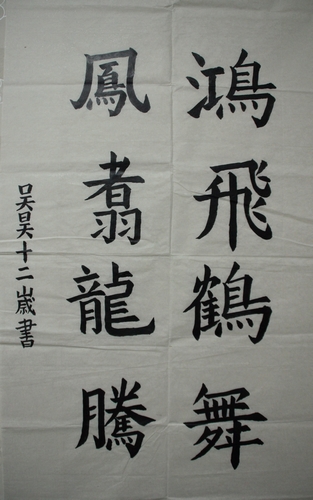 鴻飛鶴舞
鳳翥龍騰
吴昊十二歲書